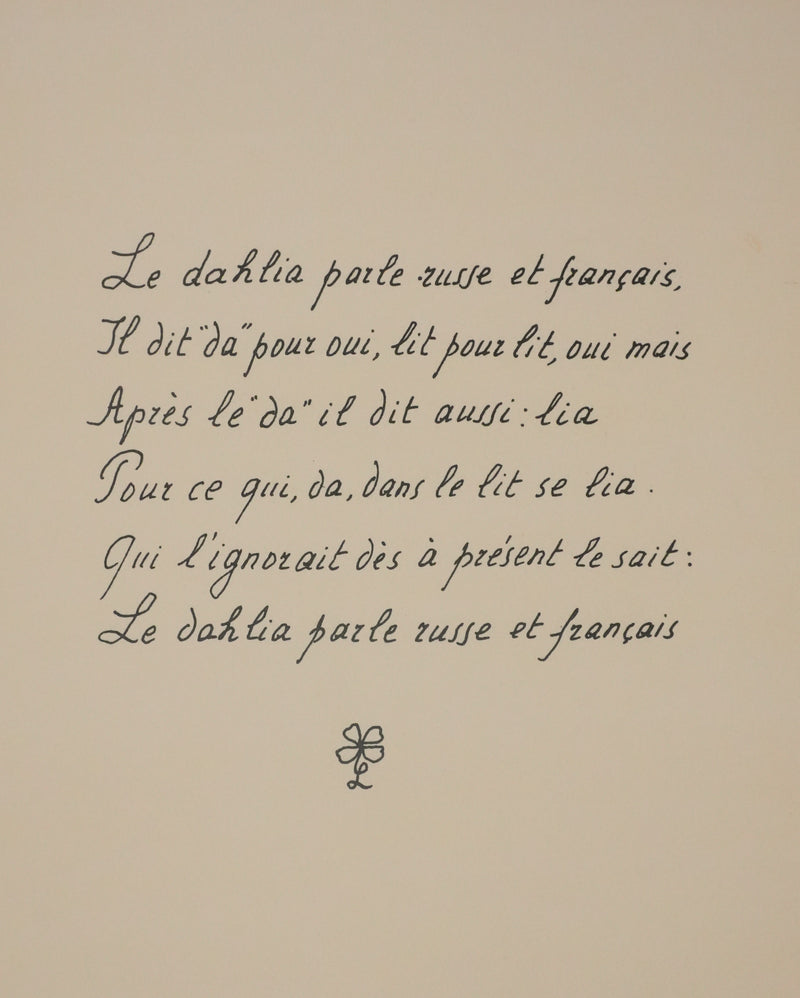 Le dahlia parle russe et français,
Il dit "da" pour oui, lit pour lit, oui mais
Après le "da" il dit aussi : lia
Pour ce qui, da, dans le lit se lia .
Qui l'ignorait dès à présent le sait :
Le dahlia parle russe et français
L